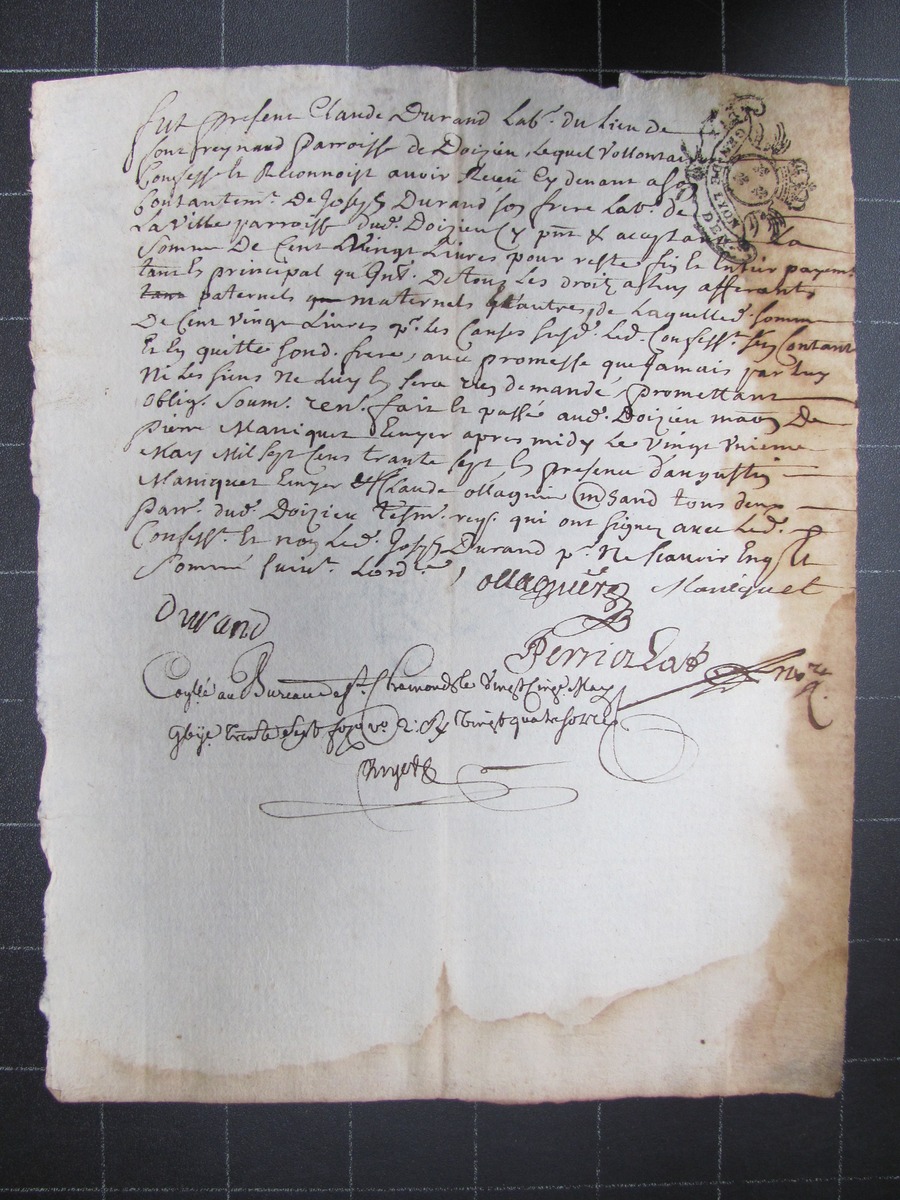 fut present Claude Durand Lab.r du Lieu de
fontfreynaud Parroisse de Doizieu, Lequel Vollontairem
Confesse et Reconnoist avoir Receu Cy devant a son
Contantem.t De Joseph Durand son frere Lab.r de
La Ville parroisse dud. Doizieu Cy pnt & aceptant La
Somme De Cent Vingt Livres pour reste fin et Entier payem.t
tant en principal qu De tous Les droitz a Luy afferants
paternels maternels qu autres, de Laquelle d. Somme
De Cent vingt Livres p.r les Causes susd. Led. Confess.t sen Contant
Et En quitte sond. frere, avec promesse que Jamais par Luy
Ni Les siens ne Luy En sera rien demandé, promettant
oblig. Soum. ren. fait et passé aud. Doizieu maon De
Pierre Maniquet Ecuyer apres midy Le Vingt unieme
May Mil sept Cens trante sept, En presence d'augustin
Maniquet Ecuyer & Claude ollagnier tous deux
Parr. dud. Doizieu tesm. req. qui ont signez avec Led.
Confess.t Et non Led. Joseph Durand p.r Ne scavoir Enq. Et
Sommé suiv.t Lord.ce
ollagnier Maniquet
Durand
Perrier
no.re
GEN DE LYON
Con.lé au Bureau de s.t Chamond le Vingt Cinq May
trente sept vingt quatre sols